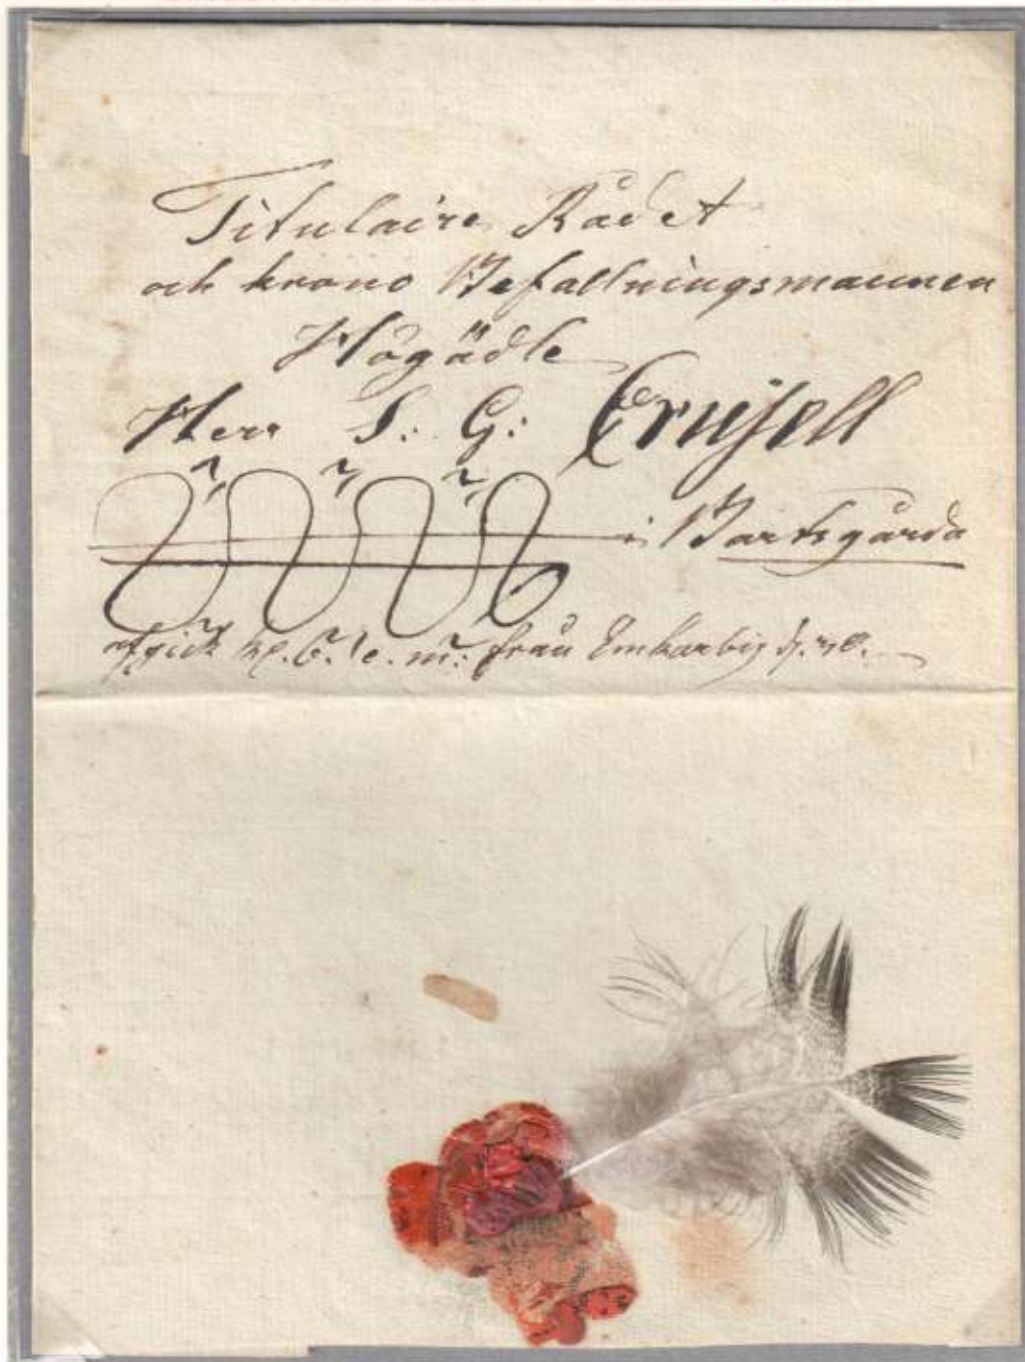 Titulaire Rådet
och krono Befallningsmannen
Högädle
Herr S. G: Crusell
i Bartsgårda
afgick kl. 6. e. m: från Emkarby d.